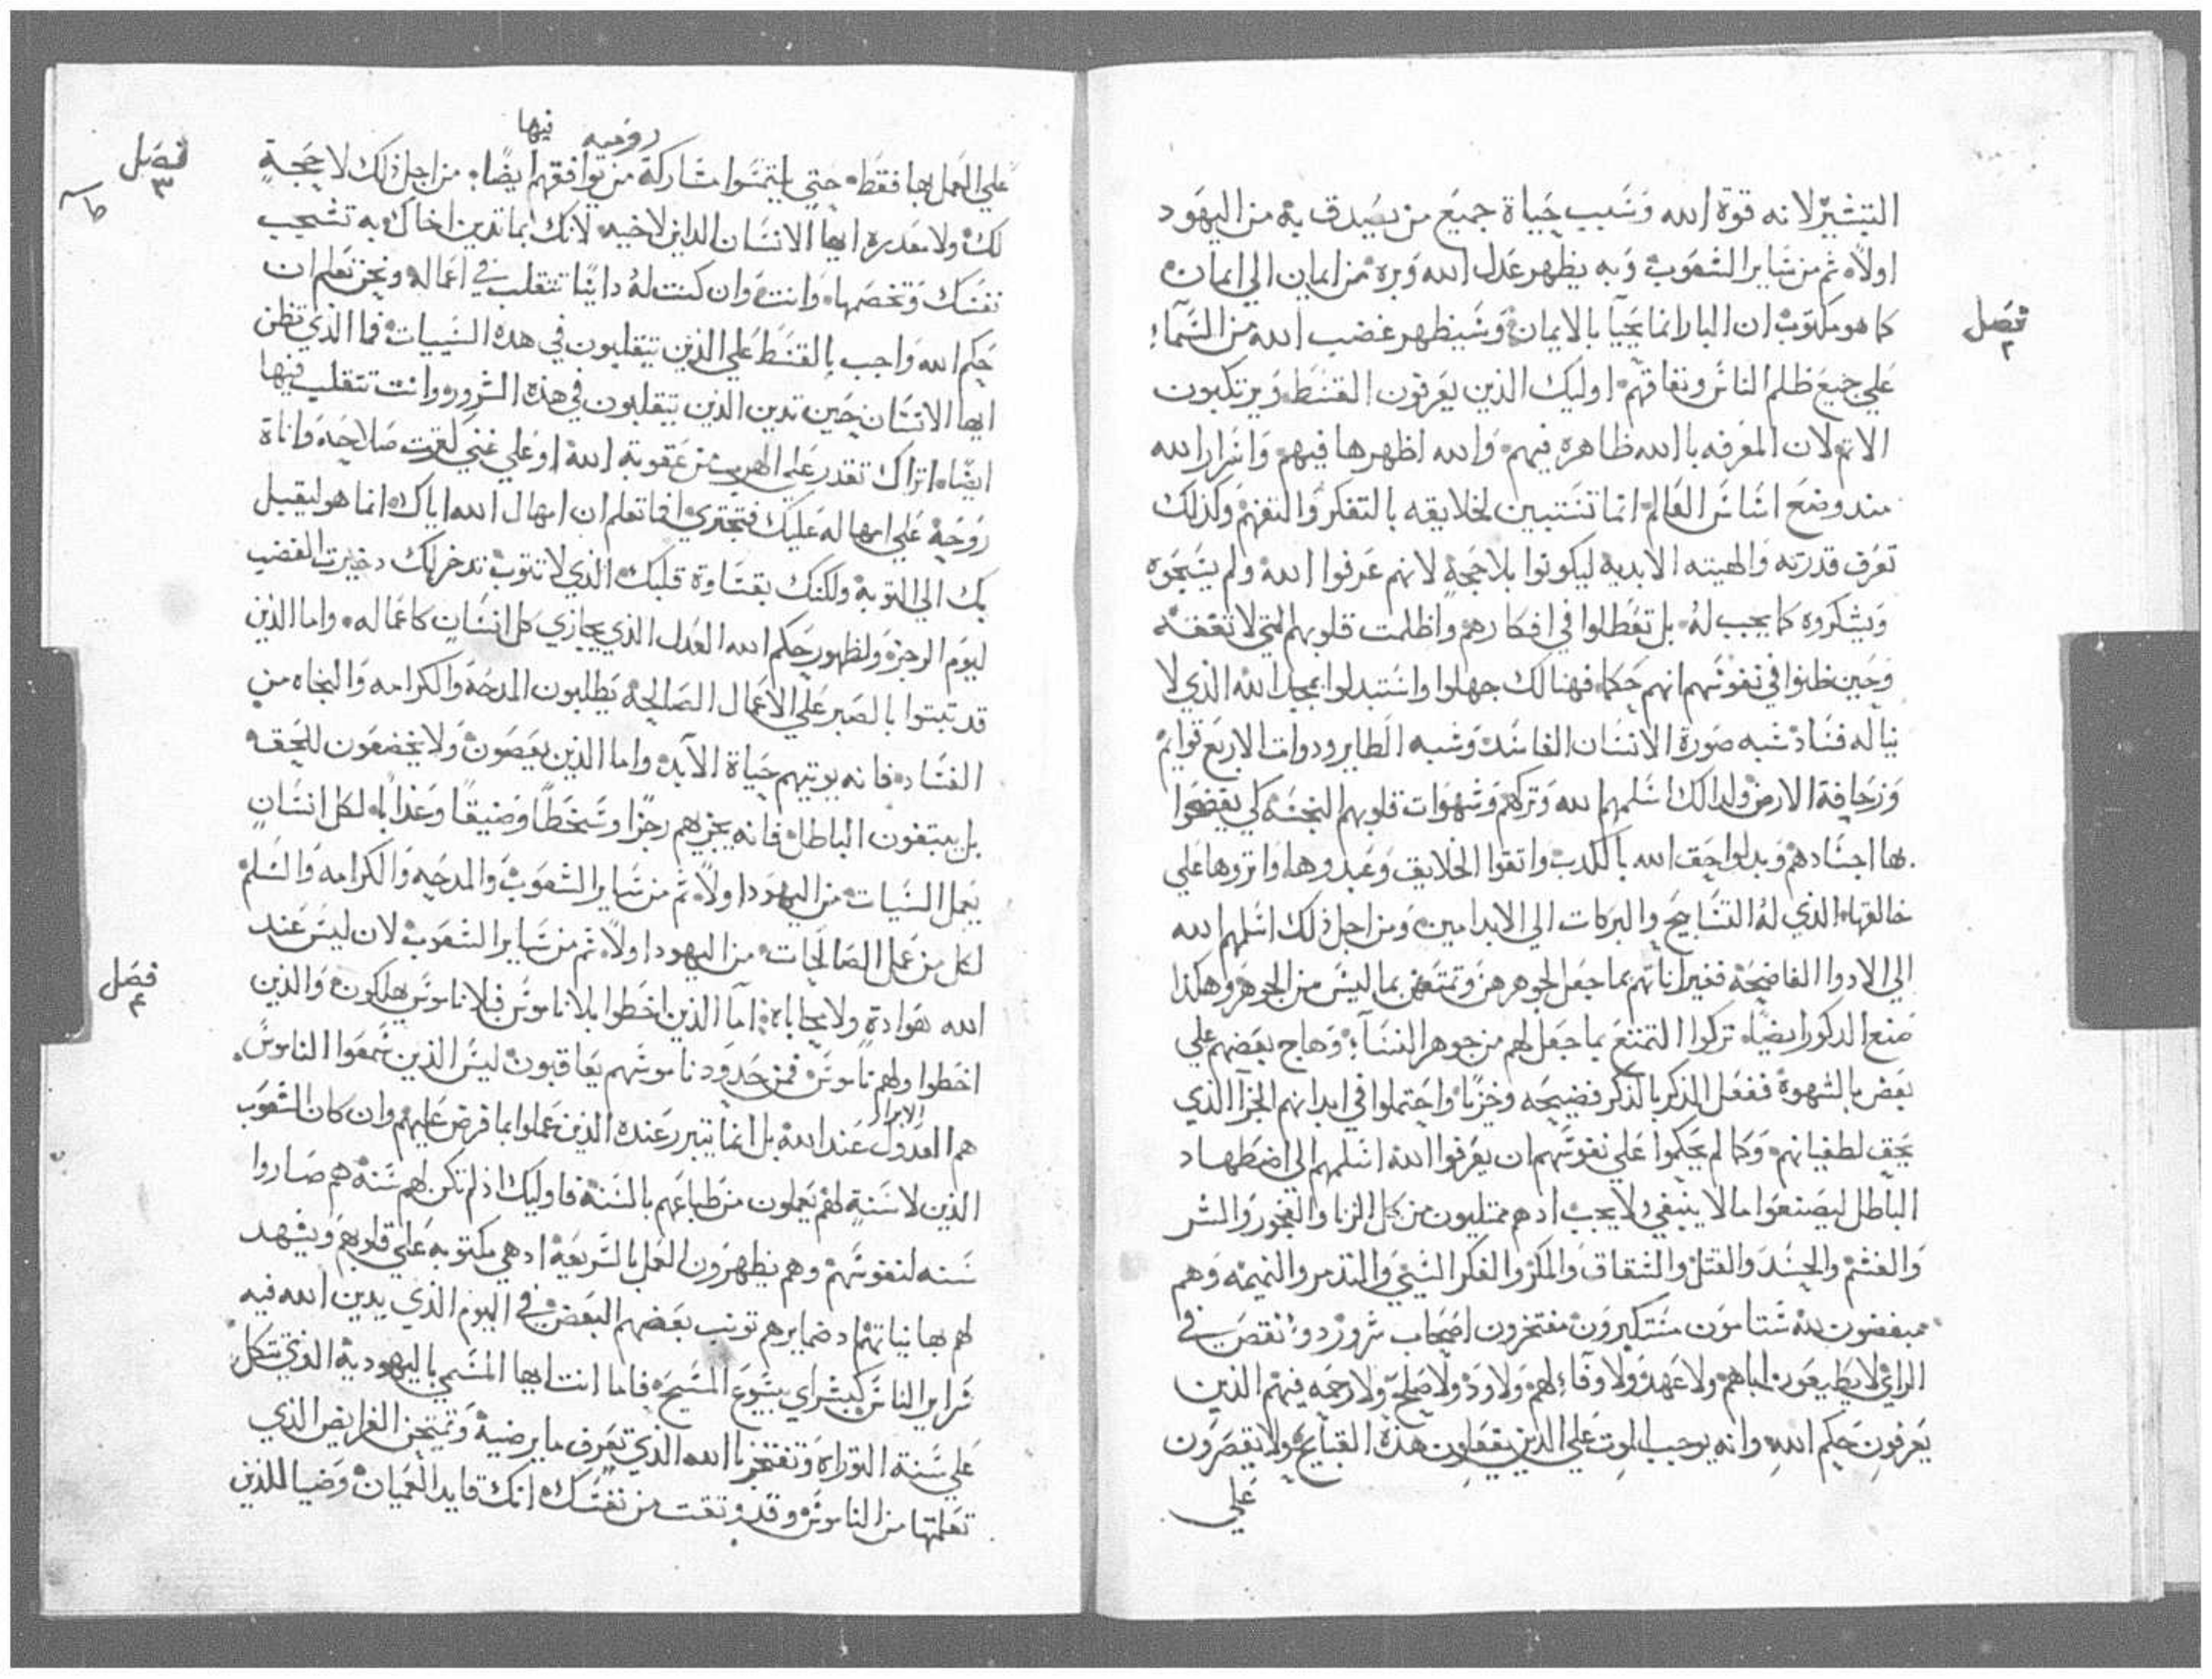 التبشير لانه قوة الله وسبب حياة جميع من يصدق به من اليهود
اولاً ثم من ساير الشعوب وبه يظهر عدل الله وبره من ايمان الي ايمان
فصل ٢
كما هو مكتوب ان البار انما يحيا بالايمان وسيظهر غضب الله من السماء
علي جميع ظلم الناس ونفاقهم اوليك الذين يعرفون القسط ويرتكبون
الاتم لان المعرفه بالله ظاهرة فيهم والله اظهرها فيهم واسرار الله
مند وضع اساس العالم انما تستبين لخلايقه بالتفكر والتفهم وكذلك
تعرف قدرته والهيته الابدية ليكونوا بلا حجة لانهم عرفوا الله ولم يسبحوه
ويشكروه كما يجب له بل تعطلوا في افكارهم واظلمت قلوبهم التي لا تفقه
وحين ظنوا في نفوسهم انهم حكما فهنالك جهلوا واستبدلوا بمجد الله الذي لا
يناله فساد شبه صورة الانسان الفاسد وشبه الطاير ودوات الاربع قوايم
وزحافة الارض ولدالك اسلمهم الله وتركهم وشهوات قلوبهم النجسه كي يفضحوا
بها اجسادهم وبدلوا حق الله بالكدب واتقوا الخلايق وعبدوها واتروها علي
خالقها الذي له التسابيح والبركات الي الابد امين ومن اجل ذلك اسلمهم الله
الي الادوا الفاضحة فغير اناتهم بما جعل لجوهرهن وتمتعن بما ليس من الجوهر وهكذا
صنع الدكور ايضا تركوا التمتع بما جعل لهم من جوهر النسآ وهاج بعضهم علي
بعض بالشهوة ففعل الذكر بالذكر فضيحه وخزيا واحتملوا في ابدانهم الجزا الذي
يحق لطغيانهم وكما لم يحكموا علي نفوسهم ان يعرفوا الله اسلمهم الي اضطهاد
الباطل ليصنعوا ما لا ينبغي ولا يجب ادهم ممتليون من كل الزنا والفجور والشر
والغشم والحسد والقتل والشقاق والمكر والفكر السيي والتذمر والنميمه وهم
مبغضون لله شتامون مستكبرون مفتخرون اصحاب شرور دوو نقص في
الراي لا يطيعون اباهم ولا عهد ولا وفآء لهم ولا ود ولا صلح ولا رحمه فيهم الذين
يعرفون حكم الله وانه يوجب الموت علي الذين يفعلون هذه القبايح ولا يقصرون
علي
روميه فيها
علي العمل بها فقط حتي يلتمسوا مشاركة من توافقهم ايضا من اجل ذلك لا حجة
فصل ٣
لك ولا معدره ايها الانسان الداين لاخيه لانك بما تدين اخاك به تشجب
نفسك وتخصمها وانت وان كنت له داينا تتقلب في اعماله ونحن نعلم ان
حكم الله واجب بالقسط علي الذين يتقلبون في هده السييات فما الذي تظن
ايها الانسان حين تدين الذين يتقلبون في هذه الشرور وانت تتقلب فيها
ايضا اتراك تقدر علي الهرب من عقوبة الله او علي غني كثرت صلاحه واناة
روحه علي امهاله عليك فتجتري افما تعلم ان امهال الله اياك انما هو ليقبل
بك الي التوبة ولكنك بقساوة قلبك الذي لا تتوب تدخر لك دخيرت الغضب
ليوم الرجز ولظهور حكم الله العدل الذي يجازي كل انسان كاعماله واما الذين
قد تبتوا بالصبر علي الاعمال الصالحة يطلبون المدحة والكرامه والنجاه من
الفساد فانه يوتيهم حياة الآبد واما الذين يعصون ولا يخضعون للحق
بل يبتغون الباطل فانه يجزيهم رجزا وسخطا وضيقا وعذابا لكل انسان
يعمل السيات من اليهود اولاً ثم من ساير الشعوب والمدحه والكرامه والسلم
لكل من عمل الصالحات من اليهود اولاً ثم من ساير الشعوب لان ليس عند
فصل ٤
الله هوادة ولا محاباة اما الذين اخطوا بلا ناموس فبلا ناموس يهلكون والذين
اخطوا ولهم ناموس فمن حدود ناموسهم يعاقبون ليس الذين سمعوا الناموس
الابرار
هم العدول عند الله بل انما يتبرر عنده الذين عملوا بما فرض عليهم وان كان الشعوب
الذين لا سنة لهم يعملون من طباعهم بالسنة فاوليك اذ لم تكن لهم سنة هم صاروا
سنه لنفوسهم وهم يظهرون العمل بالشريعة ادهي مكتوبه علي قلوبهم ويشهد
لهم بها نياتهم اد ضمايرهم تونب بعضهم البعض في اليوم الذي يدين الله فيه
سراير الناس كبشراي بيسوع المسيح فاما انت ايها المسمي باليهودية الذي تتكل
علي سنة التوراه وتفتخر بالله الذي تعرف ما يرضيه وتمتحن الفرايض الذي
تعلمتها من الناموس وقد وتقت من نفسك انك قايد العميان وضيا للذين